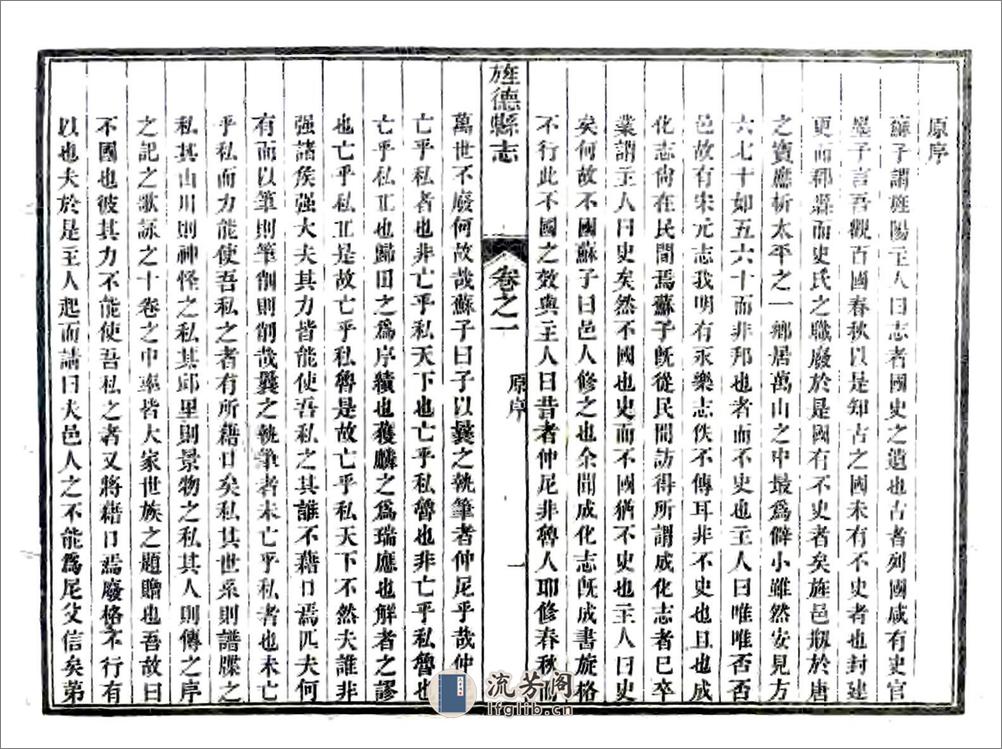 原序
蘇子謂旌陽主人曰志者國史之遺也古者列國咸有史官
墨子言吾觀百國春秋以是知古之國未有不史者也封建
更而郡縣而史氏之職廢於是國有不史者矣旌邑剏於唐
之寶應析太平之一鄉居萬山之中最爲僻小雖然安見方
六七十如五六十而非邦也者而不史也主人曰唯唯否否
邑故有宋元志我明有永樂志佚不傳耳非不史也且也成
化志尚在民間焉蘇子旣從民間訪得所謂成化志者已卒
業謂主人曰史矣然不國也史而不國猶不史也主人曰史
矣何故不國蘇子曰邑人修之也余聞成化志旣成書旋格
不行此不國之效與主人曰昔者仲尼非魯人耶修春秋
旌德縣志
卷之一
原序
一
萬世不廢何故哉蘇子曰子以曩之執筆者仲尼乎哉仲
亡乎私者也非亡乎私天下也亡乎私魯也非亡乎私魯也
亡乎私丘也歸田之爲序績也獲麟之爲瑞應也解者之謬
也亡乎私丘是故亡乎私魯是故亡乎私天下不然夫誰非
强諸侯强大夫其力皆能使吾私之其誰不藉口焉匹夫何
有而以筆則筆削則削哉曩之執筆者未亡乎私者也未亡
乎私而力能使吾私之者有所藉口矣私其世系則譜牒之
私其山川則神怪之私其邱里則景物之私其人則傳之序
之記之歌詠之十卷之中率皆大家世族之題贈也吾故曰
不國也彼其力不能使吾私之者又將藉口焉廢格不行有
以也夫於是主人起而請曰夫邑人之不能爲尼父信矣第
流芳阁
lfglib.cn